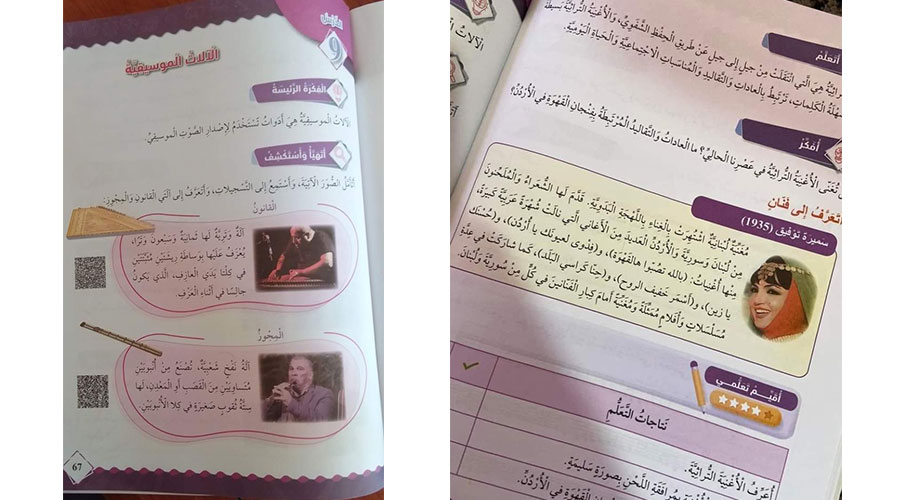 الدَّرْسُ
9
الْآلاتُ الْموسيقِيَّةُ
الْفِكْرَةُ الرَّئيسَةُ
الْآلاتُ الْموسيقِيَّةُ هِيَ أَدَواتٌ تُسْتَخْدَمُ لِإِصْدارِ الصَّوْتِ الْموسيقِيِّ.
أَتَهَيَّأُ وَأَسْتَكْشِفُ
أَتَأَمَّلُ الصُّوَرَ الْآتِيَةَ، وَأَسْتَمِعُ إِلى التَّسْجيلاتِ، وَأَتَعَرَّفُ إِلى آلَتَيِ الْقانونِ وَالْمِجْوِزِ:
الْقانونُ
آلَةٌ وَتَرِيَّةٌ لَها ثَمانِيَةٌ وَسَبْعونَ وَتَرًا،
يُعْزَفُ عَلَيْها بِوَساطَةِ ريشَتَيْنِ مُثَبَّتَتَيْنِ
في كِلْتا يَدَيِ الْعازِفِ، الَّذي يَكونُ
جالِسًا في أَثْناءِ الْعَزْفِ.
الْمِجْوِزُ
آلَةُ نَفْخٍ شَعْبِيَّةٌ، تُصْنَعُ مِنْ أُنْبوبَيْنِ
مُتَساوِيَيْنِ مِنَ الْقَصَبِ أَوِ الْمَعْدِنِ، لَها
سِتَّةُ ثُقوبٍ صَغيرَةٍ في كِلا الْأُنْبوبَيْنِ.
67
الْآلاتُ
أَتَعَلَّمُ
هِيَ الَّتي انْتَقَلَتْ مِنْ جيلٍ إِلى جيلٍ عَنْ طَريقِ الْحِفْظِ الشَّفَوِيِّ، وَالْأُغْنِيَةُ التُّراثِيَّةُ بَسيطَةٌ
سَهْلَةُ الْكَلِماتِ، تَرْتَبِطُ بِالْعاداتِ وَالتَّقاليدِ وَالْمُناسَباتِ الِاجْتِماعِيَّةِ وَالْحَياةِ الْيَوْمِيَّةِ.
أُفَكِّرُ
تُغَنّى الْأُغْنِيَةُ التُّراثِيَّةُ في عَصْرِنا الْحالِيِّ؟ ما الْعاداتُ وَالتَّقاليدُ الْمُرْتَبِطَةُ بِفِنْجانِ الْقَهْوَةِ في الْأُرْدُنِّ؟
أَتَعَرَّفُ إِلى فَنّانٍ
سميرة توفيق (1935)
مُغَنِّيَةٌ لُبْنانِيَّةٌ اشْتُهِرَتْ بِالْغِناءِ بِاللَّهْجَةِ الْبَدَوِيَّةِ. قَدَّمَ لَها الشُّعَراءُ وَالْمُلَحِّنونَ
مِنْ لُبْنانَ وَسورِيَّةَ وَالْأُرْدُنِّ الْعَديدَ مِنَ الْأَغاني الَّتي نالَتْ شُهْرَةً عَرَبِيَّةً كَبيرَةً،
مِنْها أُغْنِياتُ: (بالله تصبّوا هالقهوة)، و(فدوى لعيونك يا أردن)، و(حُسنك
يا زين)، و(أسمر خفيف الروح)، و(حِنّا كراسي البلد)، كَما شارَكَتْ في عِدَّةِ
مُسَلْسَلاتٍ وَأَفْلامٍ مُمَثِّلَةً وَمُغَنِّيَةً أَمامَ كِبارِ الْفَنّانينَ في كُلٍّ مِنْ سورِيَّةَ وَلُبْنانَ.
أُقَيِّمُ تَعَلُّمي
نَتاجاتُ التَّعَلُّمِ
أُعَرِّفُ الْأُغْنِيَةَ التُّراثِيَّةَ.
بِمُرافَقَةِ اللَّحْنِ بِصورَةٍ سَليمَةٍ.
الْقَهْوَةِ في الْأُرْدُنِّ.